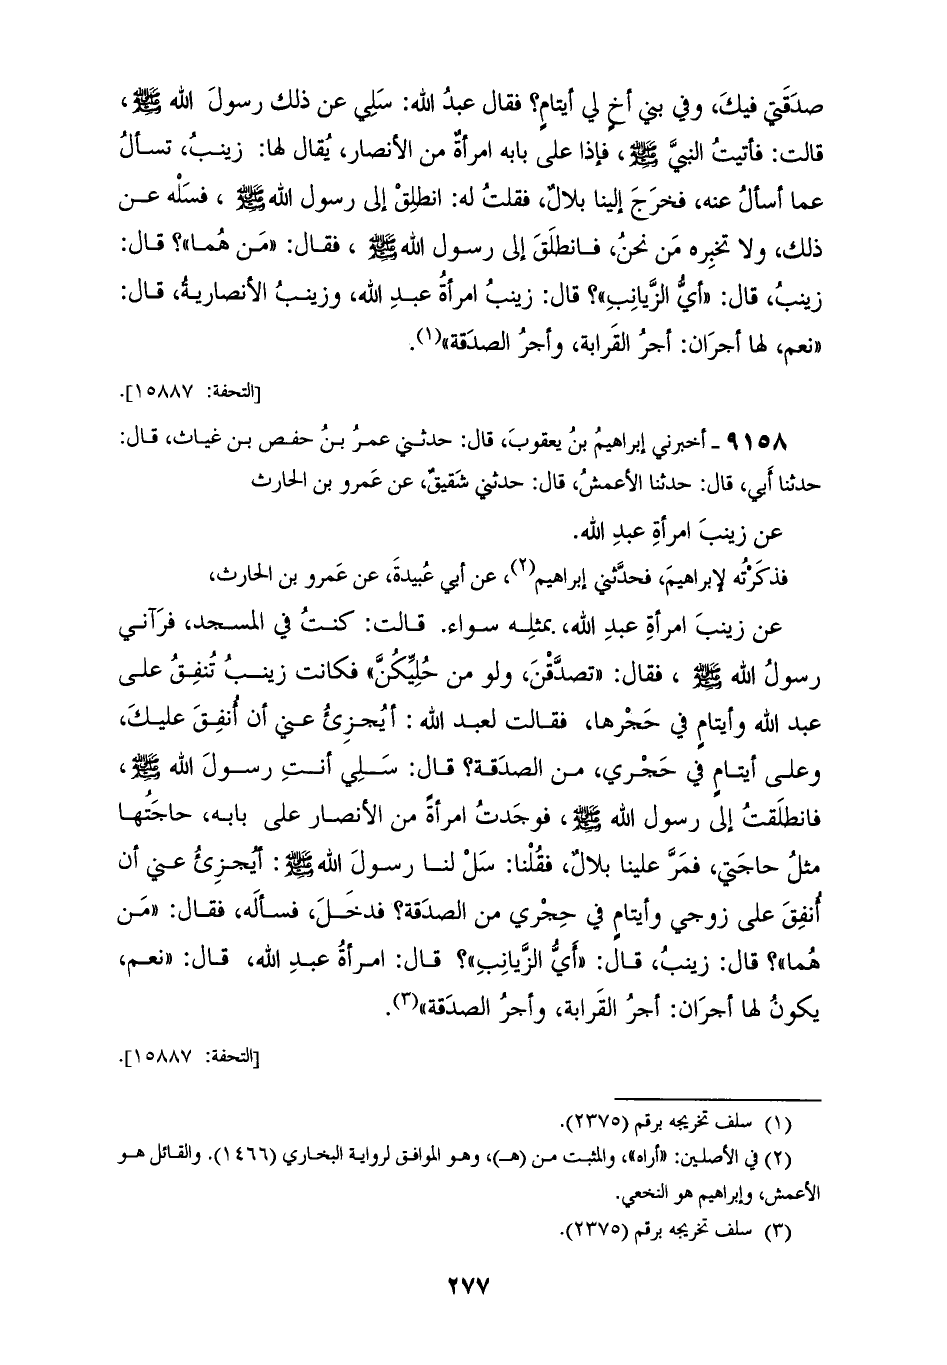 صدَقَتي فيكَ، وفي بني أخٍ لي أيتامٍ؟ فقال عبدُ الله: سَلِي عن ذلك رسولَ الله ﷺ،
قالت: فأتيتُ النبيَّ ﷺ، فإذا على بابه امرأةٌ من الأنصار، يُقال لها: زينبُ، تسألُ
عما أسألُ عنه، فخرَجَ إلينا بلالٌ، فقلتُ له: انطلِقْ إلى رسول الله ﷺ، فسَلْه عن
ذلك، ولا تخبِره مَن نحنُ، فانطلَقَ إلى رسول الله ﷺ، فقال: «مَن هُما»؟ قال:
زينبُ، قال: «أيُّ الزَّيانِبِ»؟ قال: زينبُ امرأةُ عبدِ الله، وزينبُ الأنصاريةُ، قال:
«نعم، لها أجرَان: أجرُ القَرابة، وأجرُ الصدَقة»(١).
[التحفة: ١٥٨٨٧].
٩١٥٨ ـ أخبرني إبراهيمُ بنُ يعقوبَ، قال: حدثني عمرُ بنُ حفص بن غياث، قال:
حدثنا أَبي، قال: حدثنا الأعمشُ، قال: حدثني شَقيقٌ، عن عَمرو بن الحارث
عن زينبَ امرأةِ عبدِ الله.
فذكَرْتُه لإبراهيمَ، فحدَّثني إبراهيم(٢)، عن أبي عُبيدةَ، عن عَمرو بن الحارث،
عن زينبَ امرأةِ عبد الله، بمثلِه سواء. قالت: كنتُ في المسجد، فرَآني
رسولُ الله ﷺ، فقال: «تصدَّقْنَ، ولو من حُلِيِّكُنَّ» فكانت زينبُ تُنفِقُ على
عبد الله وأيتامٍ في حَجْرها، فقالت لعبد الله: أيُجزِئُ عني أن أُنفِقَ عليكَ،
وعلى أيتامٍ في حَجْري، من الصدَقة؟ قال: سَلِي أنتِ رسولَ الله ﷺ،
فانطلَقتُ إلى رسول الله ﷺ، فوجَدتُ امرأةً من الأنصار على بابه، حاجَتُها
مثلُ حاجَتي، فمَرَّ علينا بلالٌ، فقُلْنا: سَلْ لنا رسولَ الله ﷺ: أيُجزِئُ عني أن
أُنفِقَ على زوجي وأيتامٍ في حِجْري من الصدَقة؟ فدخَلَ، فسألَه، فقال: «مَن
هُما»؟ قال: زينبُ، قال: «أَيُّ الزَّيانِبِ»؟ قال: امرأةُ عبدِ الله، قال: «نعم،
يكونُ لها أجرَان: أجرُ القَرابة، وأجرُ الصدَقة»(٣).
[التحفة: ١٥٨٨٧].
(١) سلف تخريجه برقم (٢٣٧٥).
(٢) في الأصلين: «أراه»، والمثبت من (هـ)، وهو الموافق لرواية البخاري (١٤٦٦). والقائل هو
الأعمش، وإبراهيم هو النخعي.
(٣) سلف تخريجه برقم (٢٣٧٥).
٢٧٧